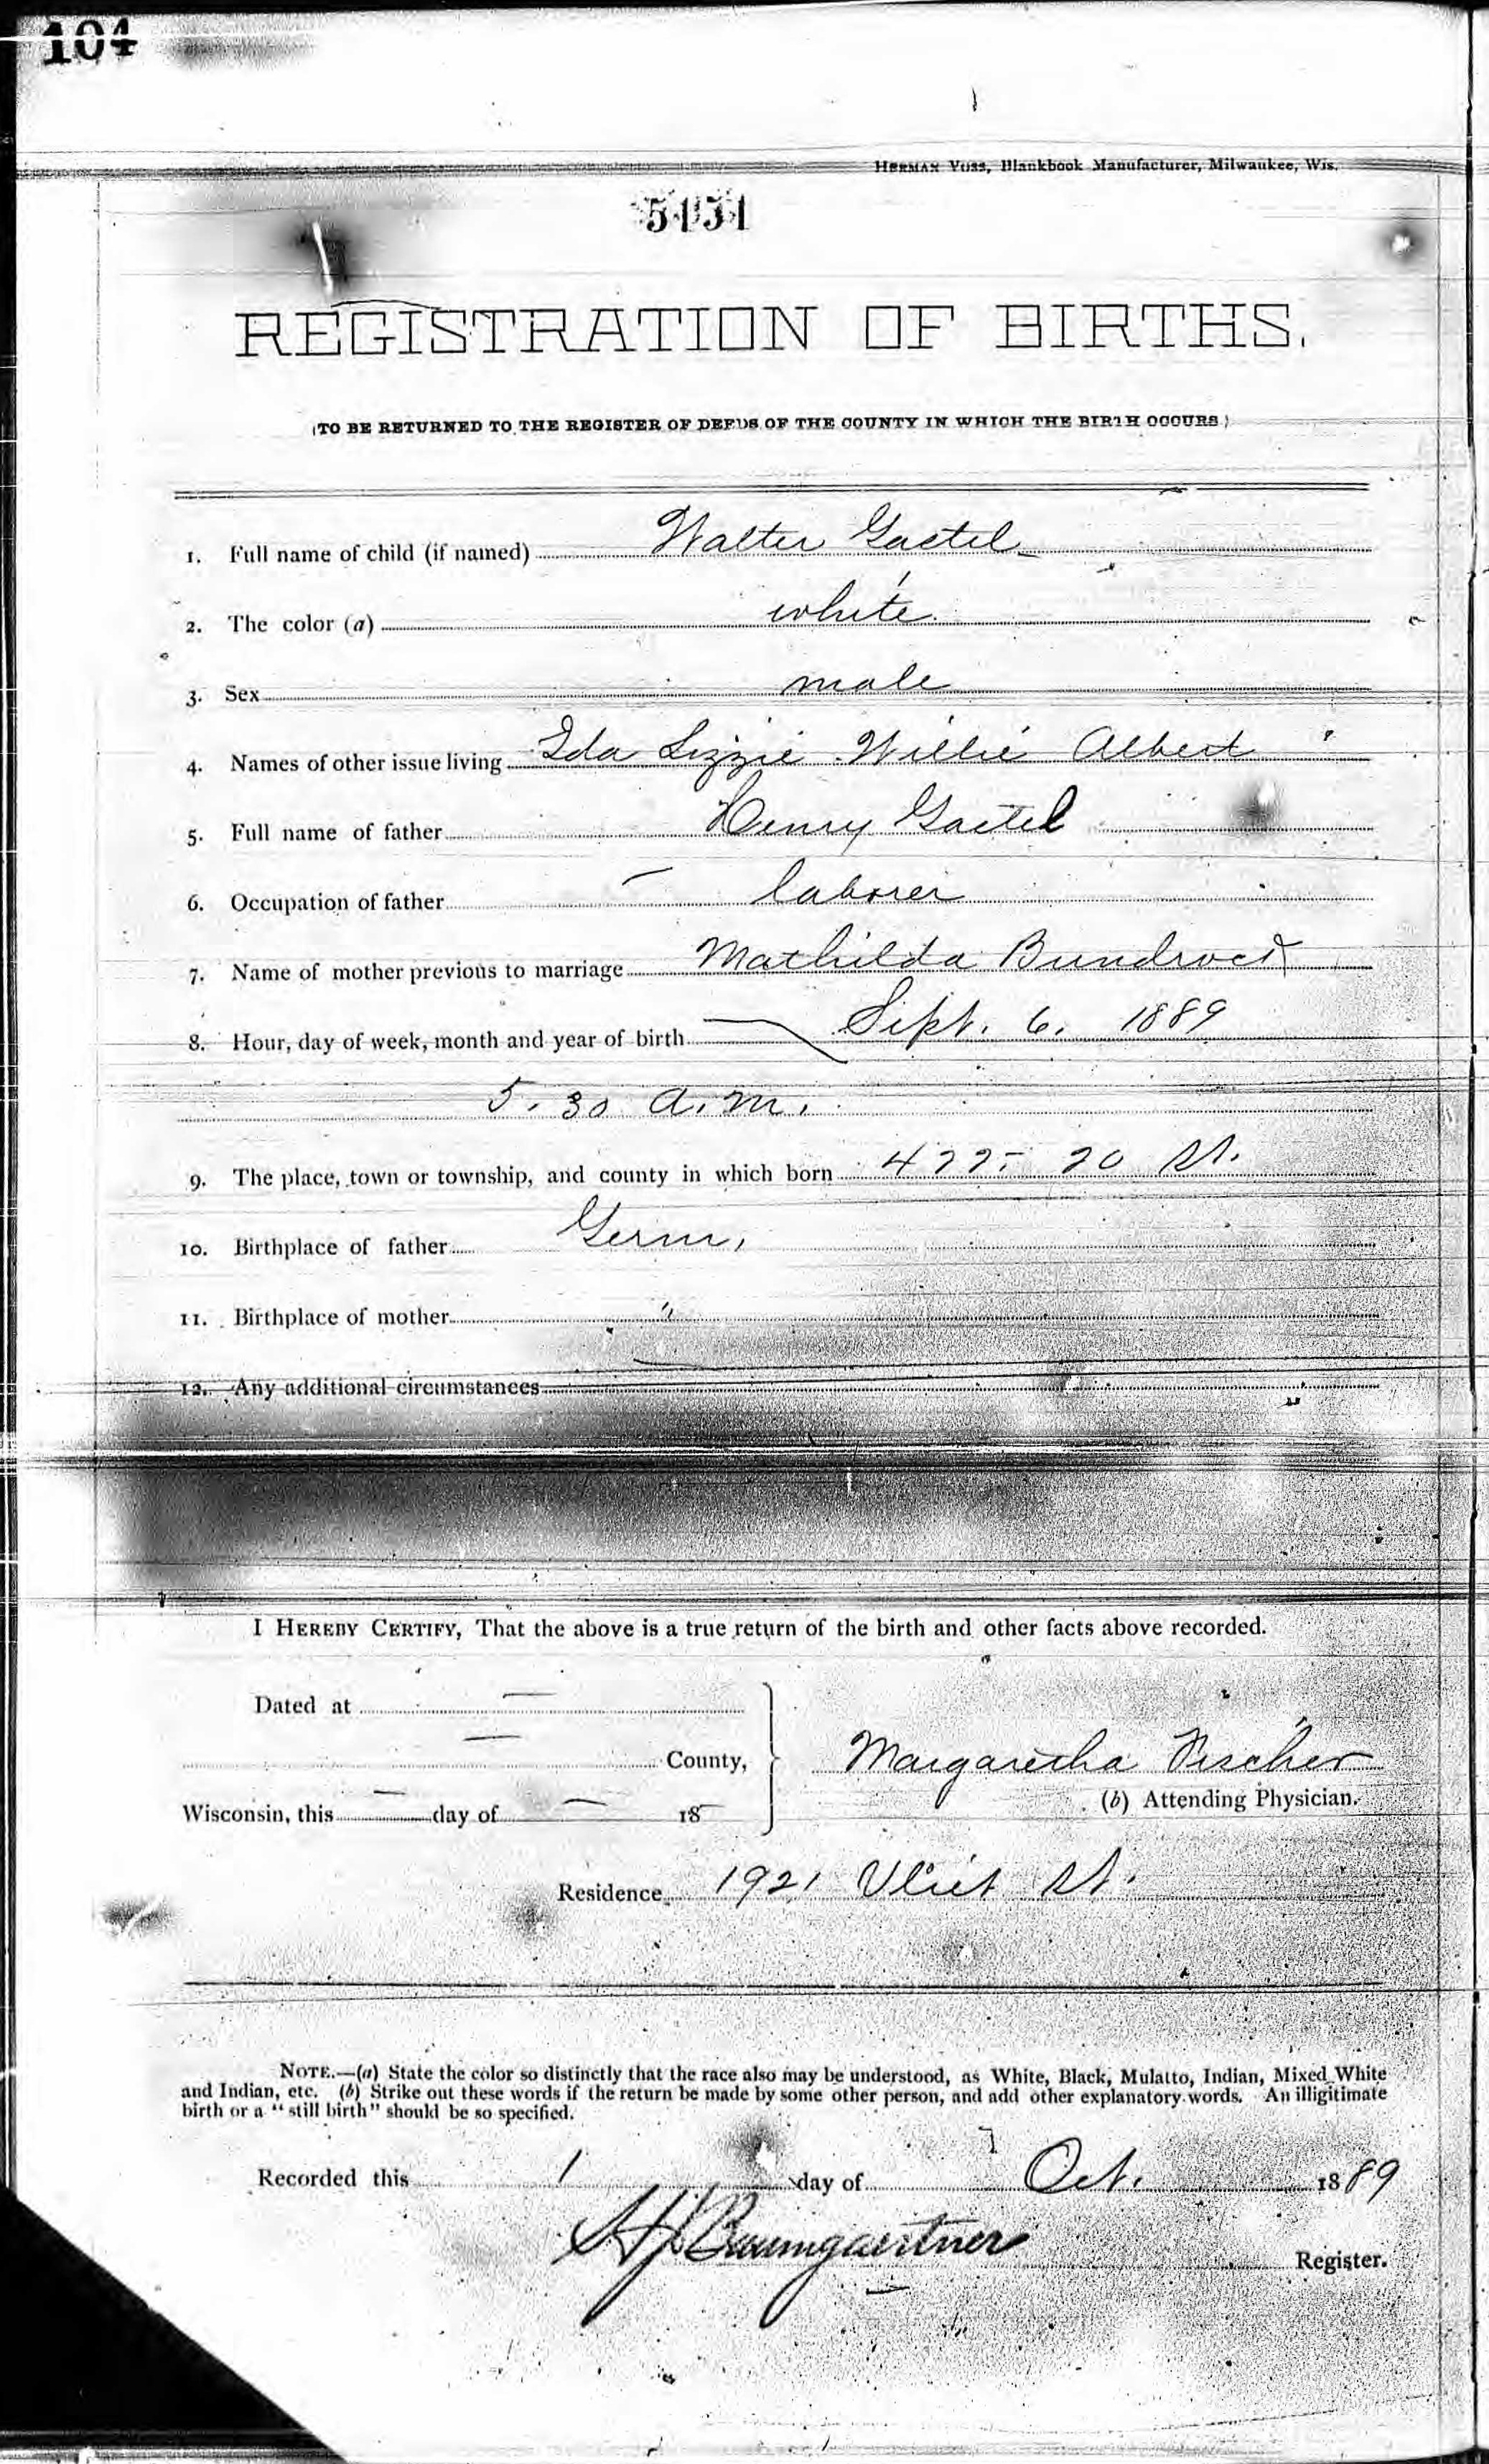 104
HERMAN VOSS, Blankbook Manufacturer, Milwaukee, Wis.
REGISTRATION OF BIRTHS.
(TO BE RETURNED TO THE REGISTER OF DEEDS OF THE COUNTY IN WHICH THE BIRTH OCCURS)
1. Full name of child (if named) Walter Gaetel
2. The color (a) white
3. Sex male
4. Names of other issue living Ida Lizzie Willie Albert
5. Full name of father Henry Gaetel
6. Occupation of father laborer
7. Name of mother previous to marriage Mathilda
8. Hour, day of week, month and year of birth Sept. 6. 1889
5.30 a.m.
9. The place, town or township, and county in which born 20 St.
10. Birthplace of father Germ.
11. Birthplace of mother "
12. Any additional circumstances
I HEREBY CERTIFY, That the above is a true return of the birth and other facts above recorded.
Dated at
County,
Margaretha Fischer
(b) Attending Physician.
Wisconsin, this day of 18
Residence 1921 Vliet St.
NOTE.—(a) State the color so distinctly that the race also may be understood, as White, Black, Mulatto, Indian, Mixed White
and Indian, etc. (b) Strike out these words if the return be made by some other person, and add other explanatory words. An illigitimate
birth or a "still birth" should be so specified.
Recorded this 1 day of Oct. 1889
Baumgaertner Register.